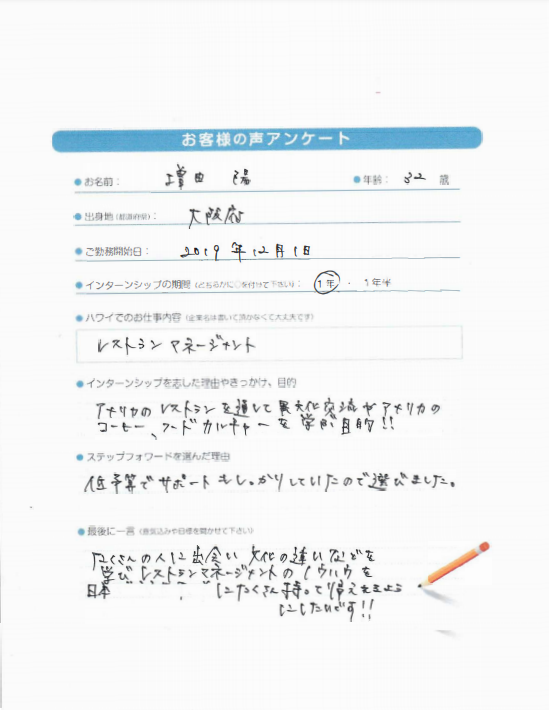 お客様の声アンケート
お名前： 増田 陽 年齢： 32 歳
出身地（都道府県）： 大阪府
ご勤務開始日： 2019年12月1日
インターンシップの期間（どちらかに○を付けて下さい）： 1年 ・ 1年半
ハワイでのお仕事内容（企業名は書いて頂かなくて大丈夫です）
レストランマネージメント
インターンシップを志した理由やきっかけ、目的
アメリカのレストランを通して異文化交流やアメリカの
コーヒー、フードカルチャーを学ぶ目的!!
ステップフォワードを選んだ理由
低予算でサポートもしっかりしていたので選びました。
最後に一言（意気込みや目標を聞かせて下さい）
たくさんの人に出会い 文化の違いなどを
学び、レストランマネージメントのノウハウを
日本にたくさん持って帰えれるよう
にしたいです!!